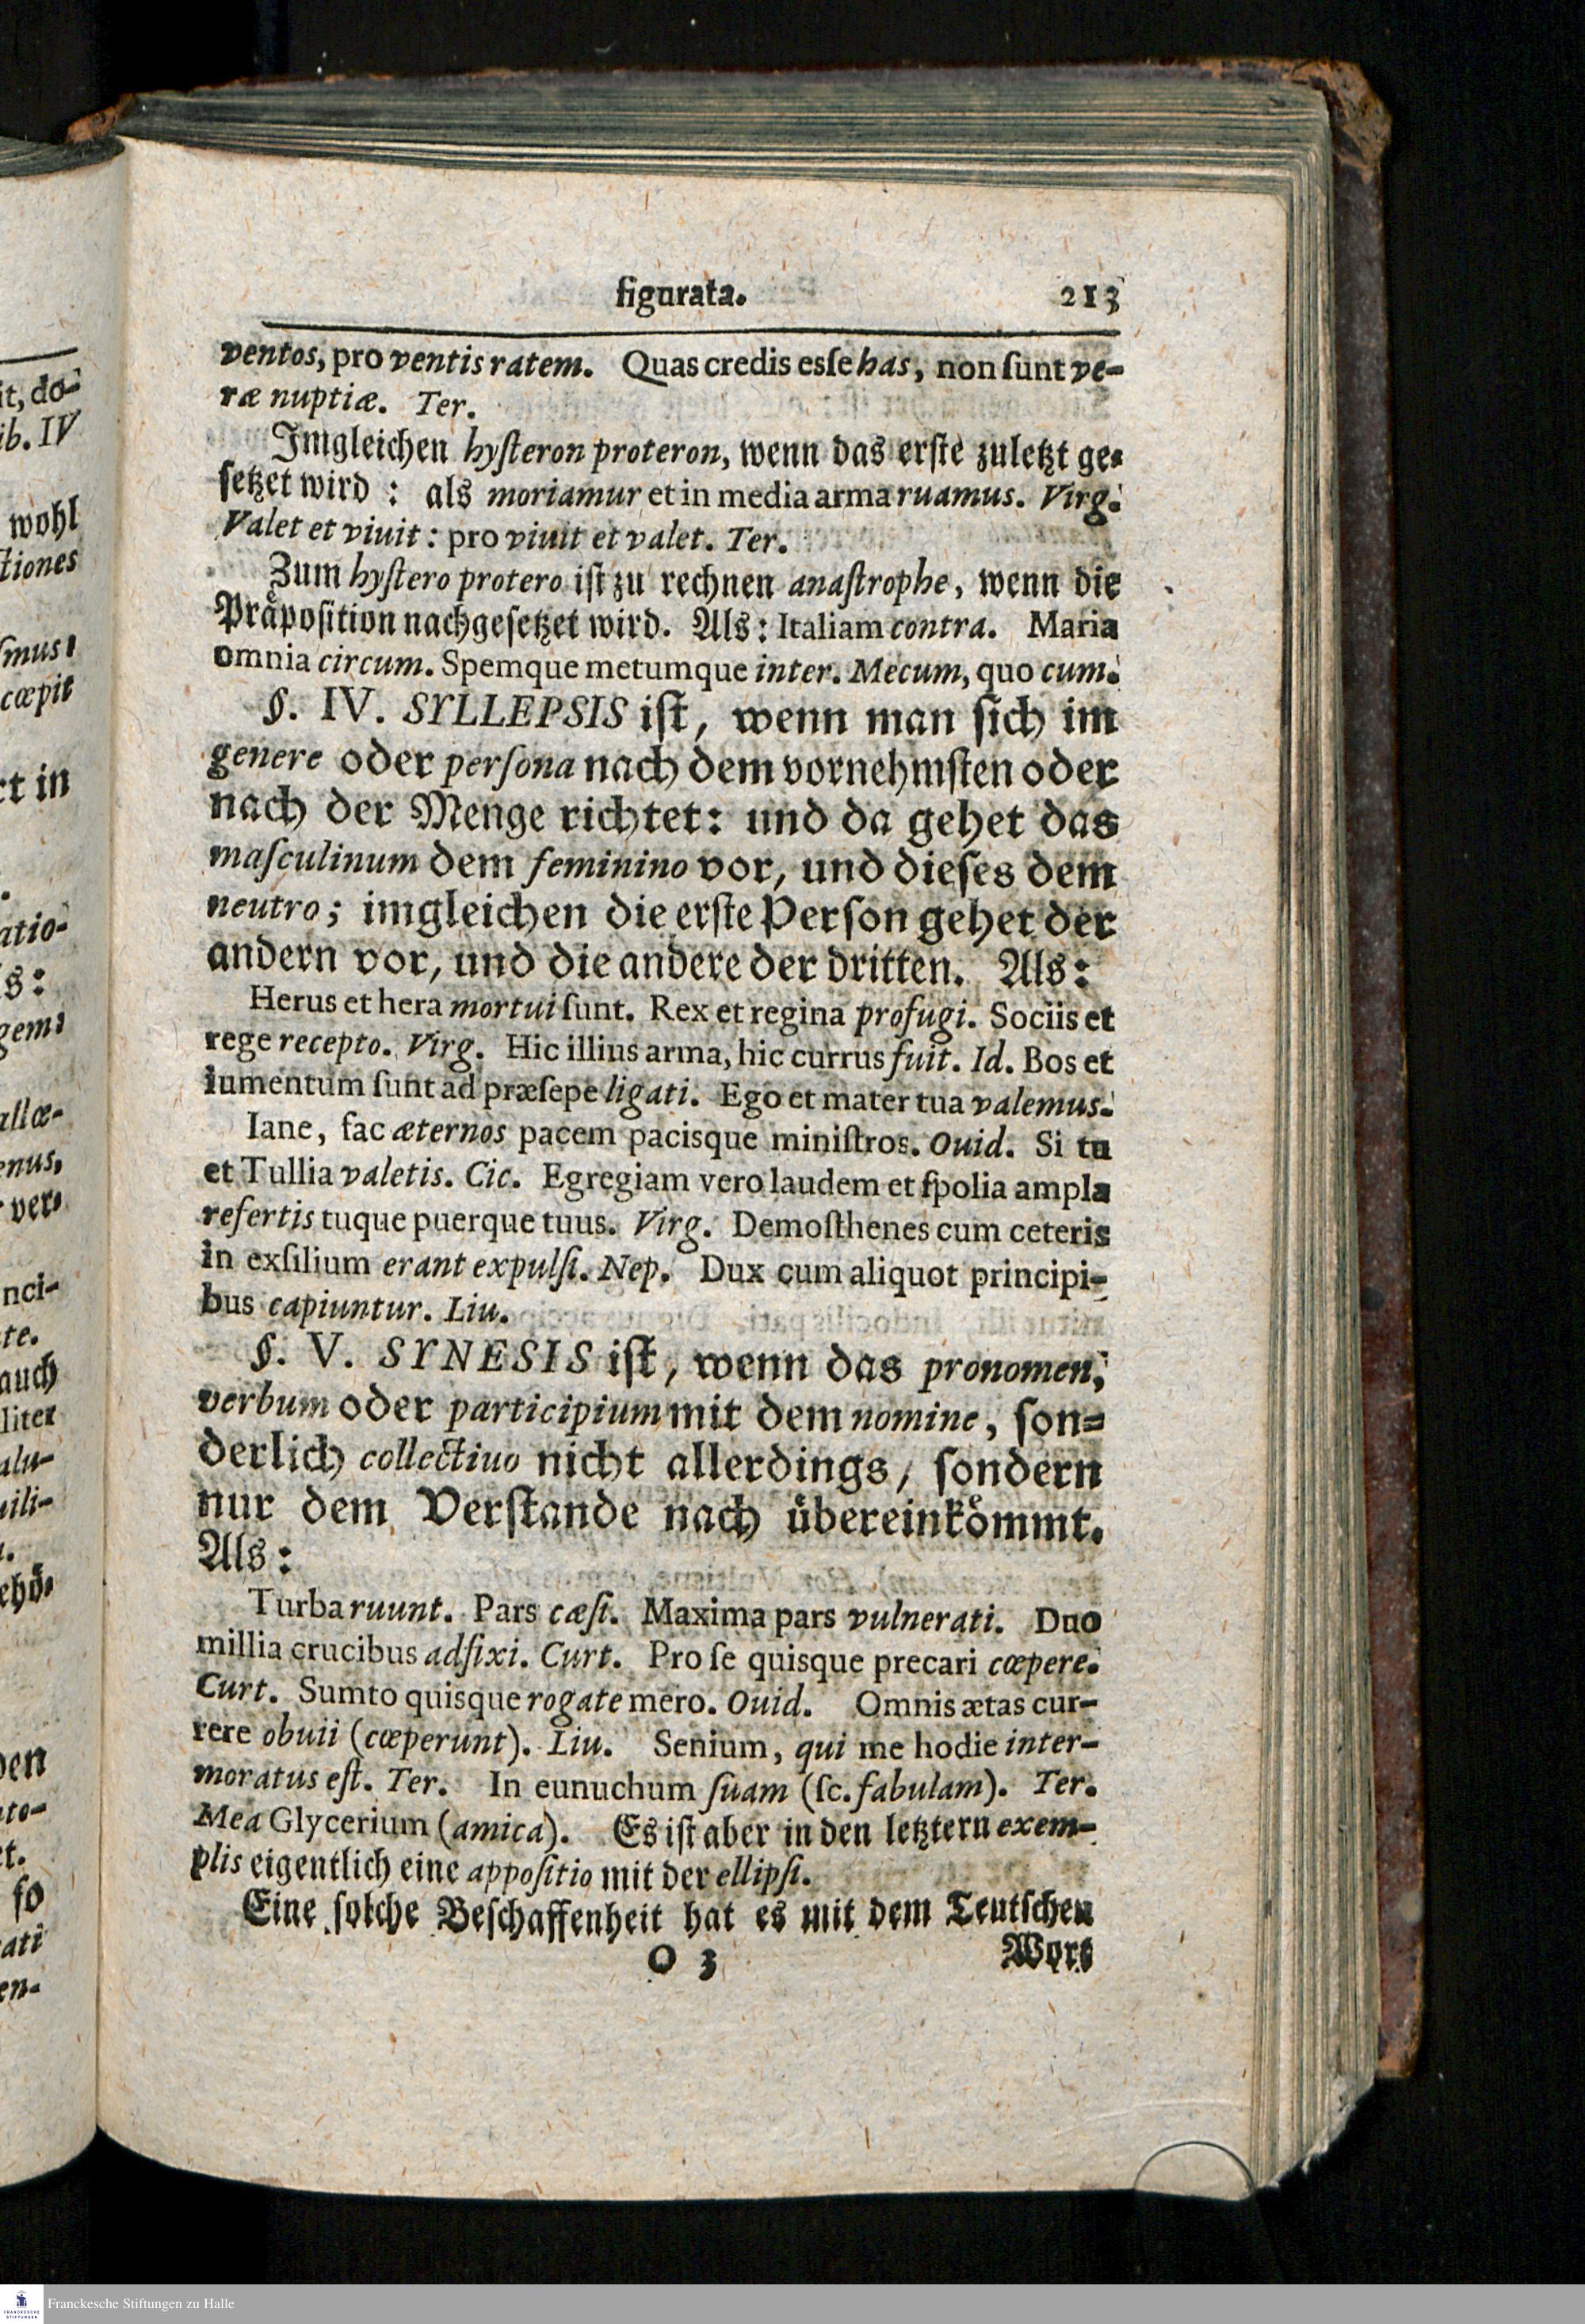 figurata. 213
ventos, pro ventis ratem. Quas credis esse has, non ſunt ve-
ræ nuptiæ. Ter.
Imgleichen hyſteron proteron, wenn das erſte zuletzt ge-
ſetzet wird : als moriamur et in media arma ruamus. Virg.
Valet et viuit : pro viuit et valet. Ter.
Zum hyſtero protero iſt zu rechnen anaſtrophe, wenn die
Präpoſition nachgeſetzet wird. Als: Italiam contra. Maria
omnia circum. Spemque metumque inter. Mecum, quo cum.
§. IV. SYLLEPSIS iſt, wenn man ſich im
genere oder perſona nach dem vornehmſten oder
nach der Menge richtet: und da gehet das
maſculinum dem feminino vor, und dieſes dem
neutro; imgleichen die erſte Perſon gehet der
andern vor, und die andere der dritten. Als:
Herus et hera mortui ſunt. Rex et regina profugi. Sociis et
rege recepto. Virg. Hic illius arma, hic currus fuit. Id. Bos et
iumentum ſunt ad præſepe ligati. Ego et mater tua valemus.
Iane, fac æternos pacem pacisque miniſtros. Ouid. Si tu
et Tullia valetis. Cic. Egregiam vero laudem et ſpolia ampla
refertis tuque puerque tuus. Virg. Demoſthenes cum ceteris
in exſilium erant expulſi. Nep. Dux cum aliquot principi-
bus capiuntur. Liu.
§. V. SYNESIS iſt, wenn das pronomen,
verbum oder participium mit dem nomine, ſon-
derlich collectiuo nicht allerdings, ſondern
nur dem Verſtande nach übereinkömmt.
Als:
Turba ruunt. Pars cæſi. Maxima pars vulnerati. Duo
millia crucibus adfixi. Curt. Pro ſe quisque precari cœpere.
Curt. Sumto quisque rogate mero. Ouid. Omnis ætas cur-
rere obuii (cœperunt). Liu. Senium, qui me hodie inter-
moratus eſt. Ter. In eunuchum ſuam (ſc. fabulam). Ter.
Mea Glycerium (amica). Es iſt aber in den letztern exem-
plis eigentlich eine appoſitio mit der ellipſi.
Eine ſolche Beſchaffenheit hat es mit dem Teutſchen
O 3 Wort
Franckesche Stiftungen zu Halle